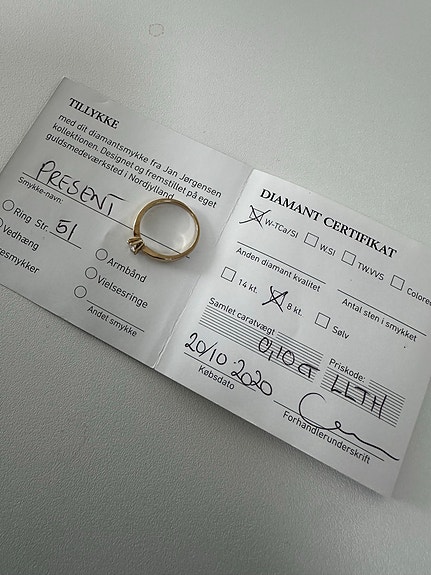 TILLYKKE
med dit diamantsmykke fra Jan Jørgensen
kollektionen. Designet og fremstillet på eget
guldsmedeværksted i Nordjylland.
PRESENT
Smykke-navn:
Ring Str. 51
Armbånd
Vedhæng
Vielsesringe
resmykker
Andet smykke
DIAMANT CERTIFIKAT
W-TCa/SI
W.SI
TW.VVS
Colored
Anden diamant kvalitet
Antal sten i smykket
14 kt.
8 kt.
Sølv
Samlet caratvægt
0,10 ct
Priskode:
LLTH
20/10-2020
Købsdato
Forhandlerunderskrift